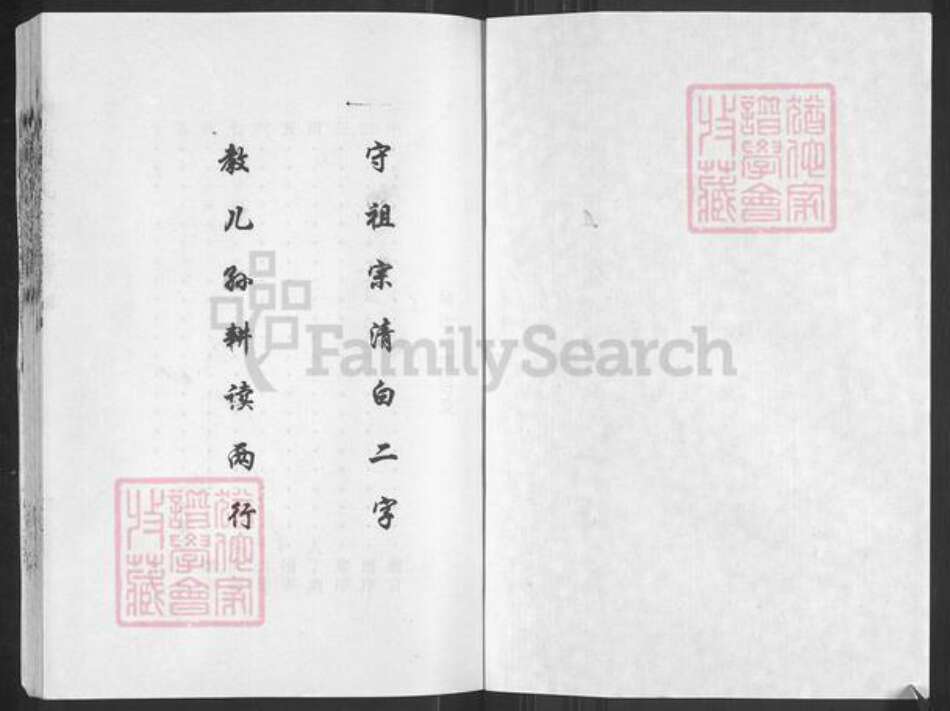 守祖宗清白二字
教儿孙耕读两行
猶他家
譜學會
收藏
猶他家
譜學會
收藏
FamilySearch